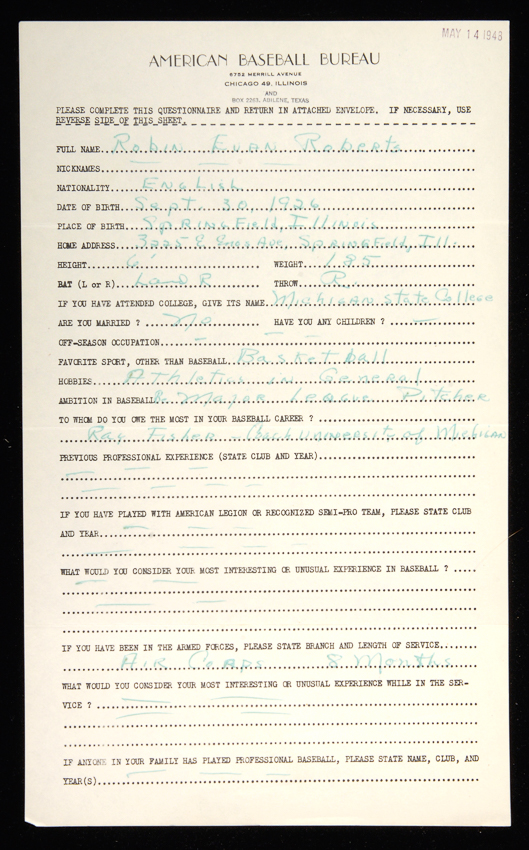 MAY 14 1948
AMERICAN BASEBALL BUREAU
6752 MERRILL AVENUE
CHICAGO 49, ILLINOIS
AND
BOX 2263, ABILENE, TEXAS
PLEASE COMPLETE THIS QUESTIONNAIRE AND RETURN IN ATTACHED ENVELOPE. IF NECESSARY, USE
REVERSE SIDE OF THIS SHEET.
FULL NAME Robin Evan Roberts
NICKNAMES
NATIONALITY English
DATE OF BIRTH Sept. 30, 1926
PLACE OF BIRTH Springfield, Illinois
HOME ADDRESS Springfield, Ill.
HEIGHT 6' WEIGHT 185
BAT (L or R) L and R THROW R.
IF YOU HAVE ATTENDED COLLEGE, GIVE ITS NAME Michigan State College
ARE YOU MARRIED ? No HAVE YOU ANY CHILDREN ? —
OFF-SEASON OCCUPATION —
FAVORITE SPORT, OTHER THAN BASEBALL Basketball
HOBBIES Athletics in General
AMBITION IN BASEBALL Be Major League Pitcher
TO WHOM DO YOU OWE THE MOST IN YOUR BASEBALL CAREER ?
Ray Fisher - Coach University of Michigan
PREVIOUS PROFESSIONAL EXPERIENCE (STATE CLUB AND YEAR)
IF YOU HAVE PLAYED WITH AMERICAN LEGION OR RECOGNIZED SEMI-PRO TEAM, PLEASE STATE CLUB
AND YEAR
WHAT WOULD YOU CONSIDER YOUR MOST INTERESTING OR UNUSUAL EXPERIENCE IN BASEBALL ?
IF YOU HAVE BEEN IN THE ARMED FORCES, PLEASE STATE BRANCH AND LENGTH OF SERVICE
Air Corps 8 Months
WHAT WOULD YOU CONSIDER YOUR MOST INTERESTING OR UNUSUAL EXPERIENCE WHILE IN THE SER-
VICE ?
IF ANYONE IN YOUR FAMILY HAS PLAYED PROFESSIONAL BASEBALL, PLEASE STATE NAME, CLUB, AND
YEAR(S)